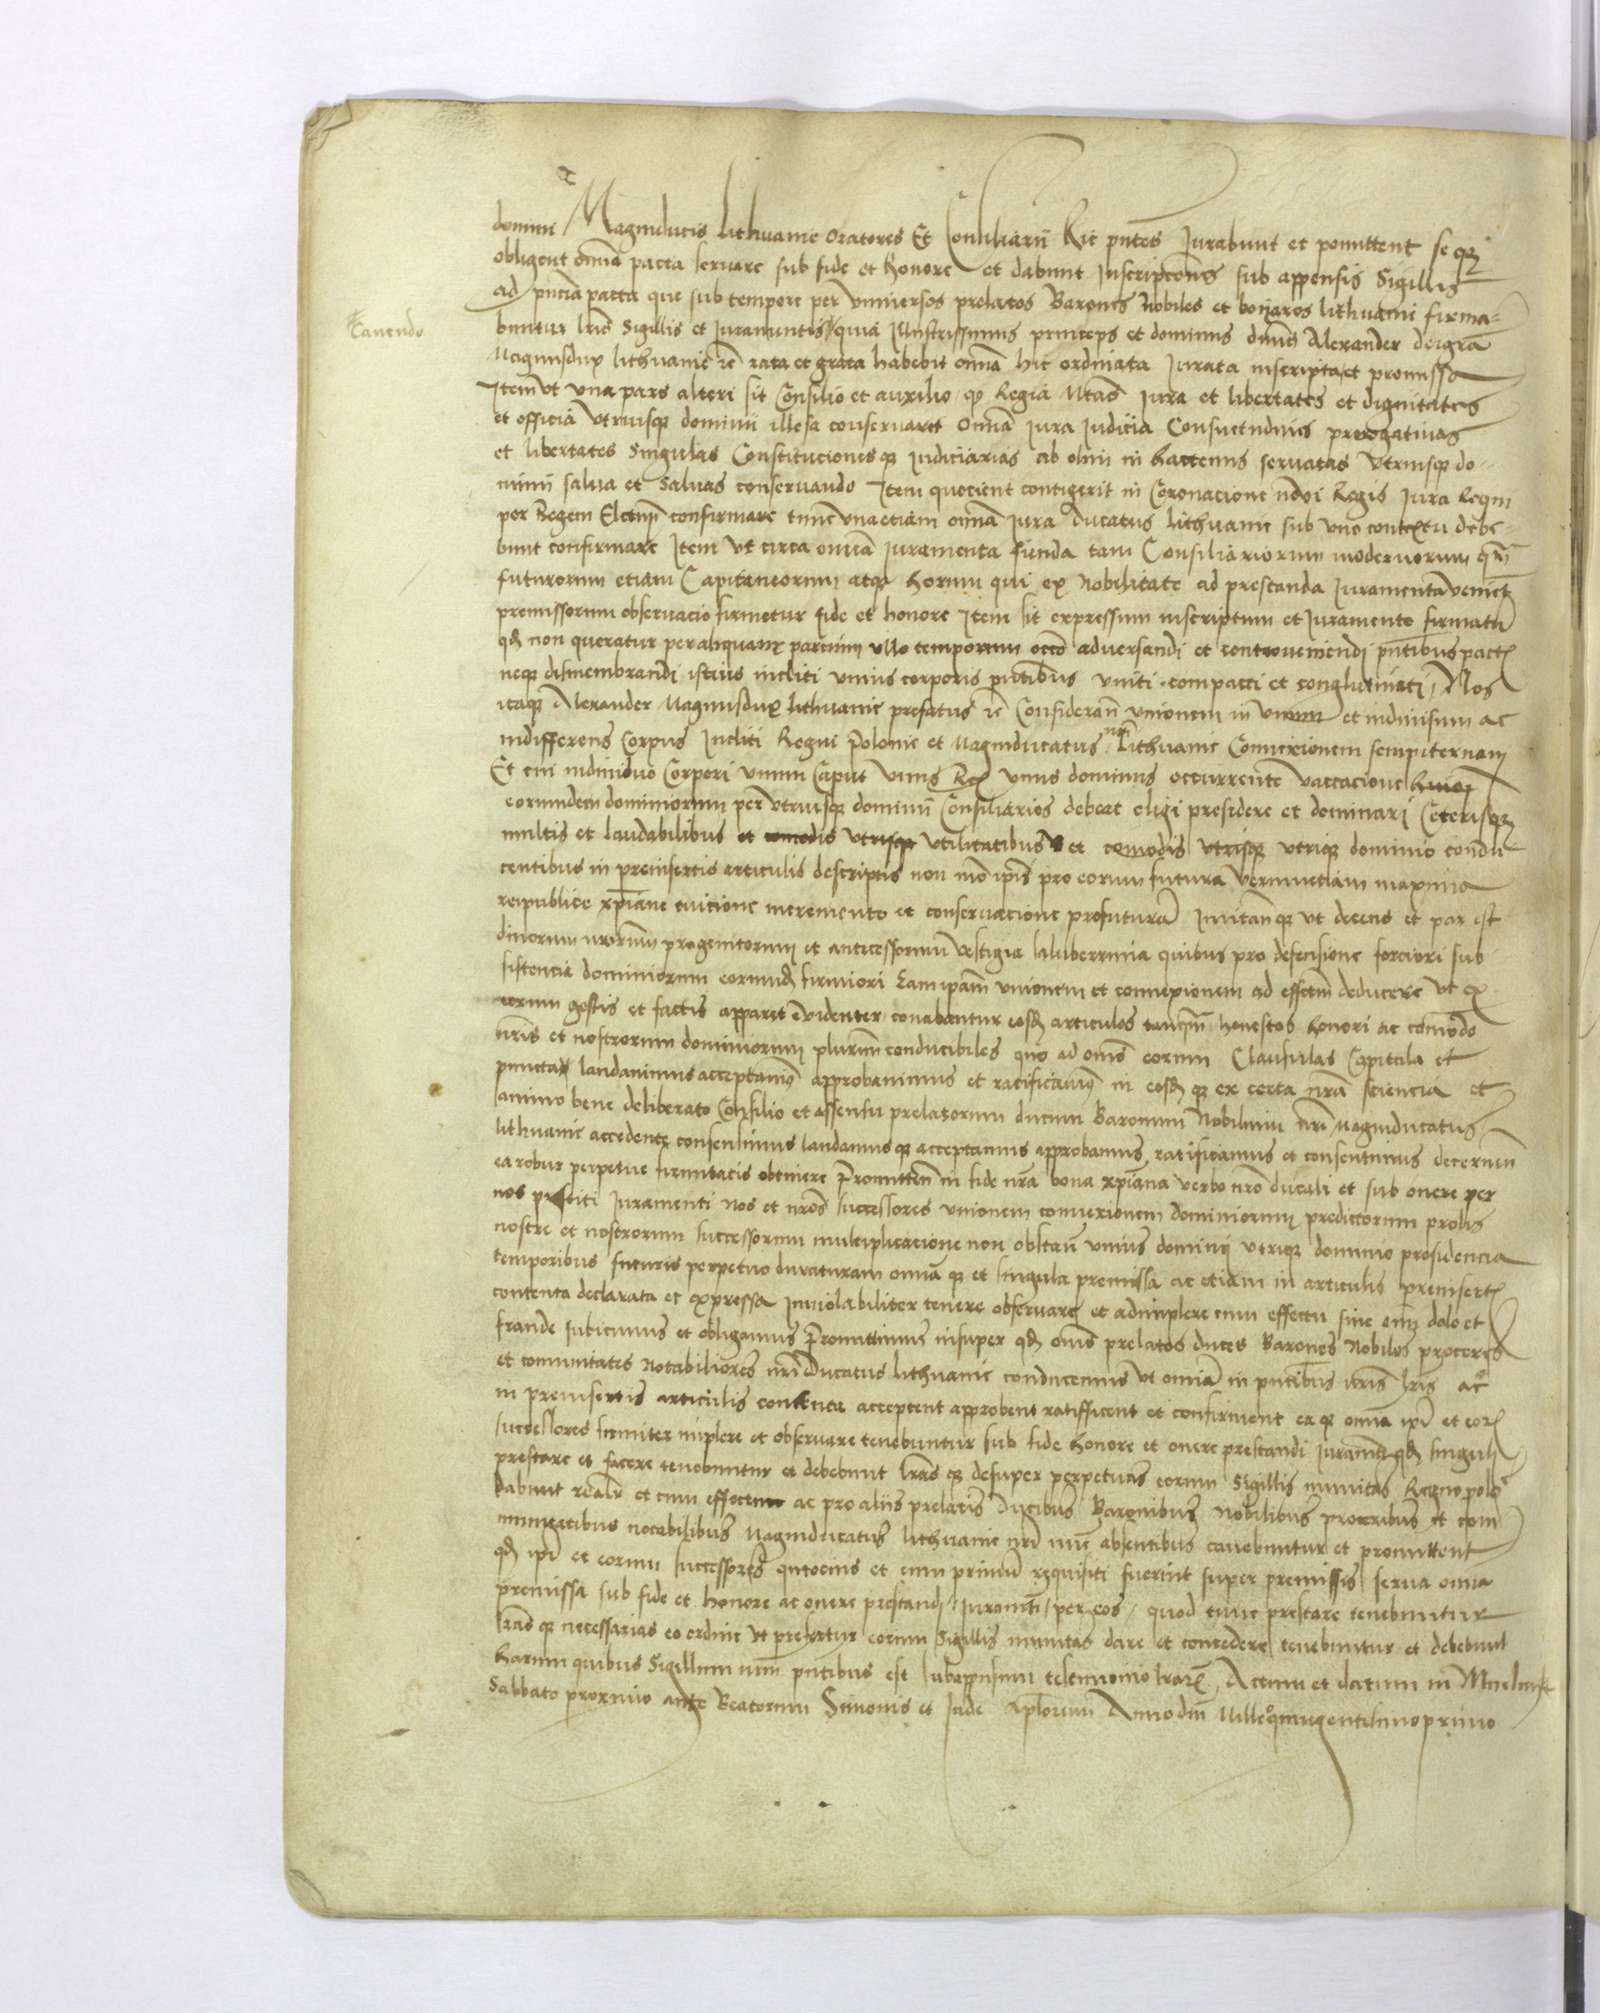 domini Magniducis Lithuanie oratores Et Consiliarii Hic pntes Jurabunt et promittent seqz
obligent omnia pacta servare sub fide et honore et dabunt Inscripcones sub appensis Sigillis
ad pncia pacta que sub tempore per vniversos prelatos Barones Nobiles et bojaros lithuanie firma-
Cavendo
buntur lris Sigillis et Juramentis quia Illustrissimus princeps et dominus dnus Alexander dei gra
Magnusdux lithuanie rc rata et grata habebit omnia hic ordinata Jurata inscripta et promissa
Item vt vna pars alteri sit Consilio et auxilio qz Regia Mtas Jura et libertates et dignitates
et officia vtriusqz dominii illesa conservaret omnia Jura Judicia Consuetudines prerogativas
et libertates Singulas Constitucionesqz Judiciarias ab olim in hactenus servatas vtriusqz do-
minii salva et salvas conservando Item quociens contigerit in Coronacione novi Regis Jura Regni
per Regem Electum confirmare tunc vna etiam omnia Jura ducatus Lithuanie sub vno contextu debe-
bunt confirmare Item vt circa omnia Juramenta fienda tam Consiliariorum modernorum qm
futurorum etiam Capitaneorum atqz horum qui ex Nobilitate ad prestanda Juramenta venient
premissorum observacio firmetur fide et honore Item sit expressum inscriptum et Juramento firmatu
qd non queratur per aliquam parcium vllo temporum occo adversandi et controveniendi pntibus pactis
neqz dismembrandi istius incliti vnius corporis pntibus vniti compacti et conglutinati Nos
itaqz Alexander Magnusdux lithuanie prefatus rc Consideran vnionem in vnum et indivisum ac
indifferens Corpus Incliti Regni Polonie et Magniducatus nri Lithuanie Connexionem sempiternam
Et cui individuo Corpori vnum Caput vnus Rex vnus dominus occurrente vaccacione
eorumdem dominiorum per vtriusqz dominii Consiliarios debeat eligi presidere et dominari Ceterisqz
multis et laudabilibus et comodis vtrisqz vtilitatibus et comodis vtrisqz vtriqz dominio condu
centibus in preinsertis articulis descriptis non mo ipis pro eorum futura verumetiam maxima
reipublice xpiane tuicione incremento et conservacione profutura Imitanqz vt decens et par est
divorum nrorum progenitorum et antecessorum vestigia saluberrima quibus pro defensione forciori sub
sistencia dominiorum eorumd firmiori Eam ipam vnionem et connexionem ad effectum deducere vt ex
eorum gestis et factis apparet Evidenter conabantur eosd articulos tanqm honestos honori ac comodo
nris et nostrorum dominiorum plurimum conducibiles quo ad omes eorum Clausulas Capitula et
puncta laudavimus acceptavimus approbavimus et ratificavimus in eosd qz ex certa nra sciencia et
animo bene deliberato Consilio et assensu prelatorum ducum Baronum Nobilium nri Magniducatus
lithuanie accedente consensimus laudamusqz acceptamus approbamus ratificamus et consentimus decernen
ea robur perpetue firmitatis obtinere Promitten in fide nra bona xpiana verbo nro ducali et sub onere per
nos prestiti Juramenti Nos et nros successores vnionem connexionem dominiorum predictorum prolis
nostre et nostrorum successorum multiplicacione non obstan vnius dominii vtriqz dominio presidencia
temporibus futuris perpetuo duraturam omnia qz et singula premissa ac etiam in articulis preinsertis
contenta declarata et expressa Inviolabiliter tenere observare et adimplere cum effectu sine omni dolo et
fraude subicimus et obligamus Promittimus insuper qd omes prelatos duces Barones Nobiles proceres
et comunitates Notabiliores nri Ducatus lithuanie conducemus vt omnia in pntibus nris lris ac
in preinsertis articulis contenta acceptent approbent ratifficent et confirment ea qz omnia ipi et eor
successores firmiter implere et observare tenebuntur sub fide honore et onere prestandi Juramti qd singuli
prestare et facere tenebuntur et debebunt lras qz desuper perpetuas eorum Sigillis munitas Regno polo
Dabunt realr et cum effectum ac pro aliis prelatis Ducibus Baronibus Nobilibus proceribus et com
munitatibus notabilibus Magniducatus lithuanie nri nunc absentibus cavebuntur et promittent
qd ipi et eorum successores quotiens et cum primum requisiti fuerint super premissis serva omnia
premissa sub fide et honore ac onere prestandi Juramti per eos quod tunc prestare tenebuntur
lras qz necessarias eo ordine vt prefertur eorum Sigillis munitas dare et concedere tenebuntur et debebunt
harum quibus Sigillum nrm pntibus est subappensum testimonio lrarum Actum et datum in Myelnik
Sabbato proximo ante Beatorum Simonis et Jude Aplorum Anno dni Millo quingentesimo primo